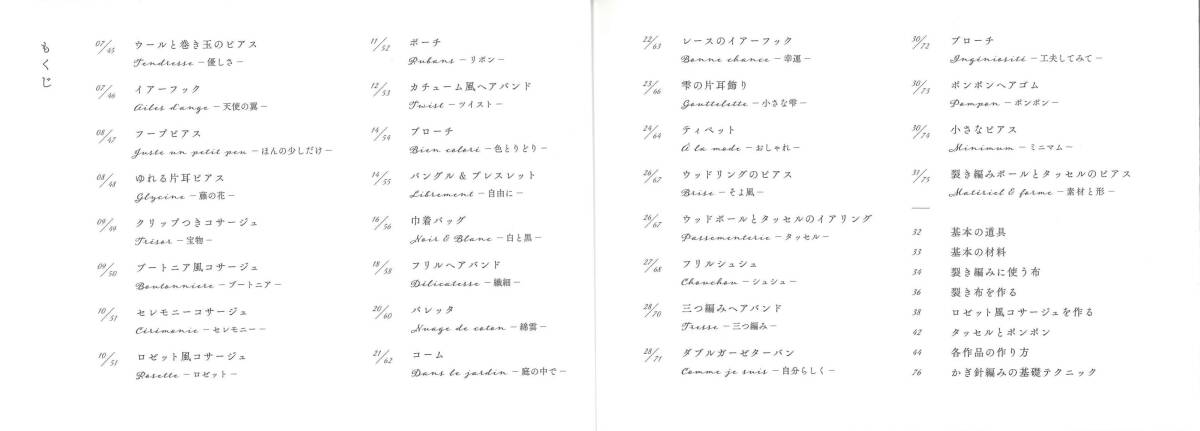 もくじ
07/45 ウールと巻き玉のピアス
Tendresse －優しさ－
07/46 イアーフック
Ailes d'ange －天使の翼－
08/47 フープピアス
Juste un petit peu －ほんの少しだけ－
08/48 ゆれる片耳ピアス
Glycine －藤の花－
09/49 クリップつきコサージュ
Trésor －宝物－
09/50 ブートニア風コサージュ
Boutonniere －ブートニア－
10/51 セレモニーコサージュ
Cérémonie －セレモニー－
10/51 ロゼット風コサージュ
Rosette －ロゼット－
11/52 ポーチ
Rubans －リボン－
12/53 カチューム風ヘアバンド
Twist －ツイスト－
14/54 ブローチ
Bien coloré －色とりどり－
14/55 バングル & ブレスレット
Librement －自由に－
16/56 巾着バッグ
Noir & Blanc －白と黒－
18/58 フリルヘアバンド
Délicatesse －繊細－
20/60 バレッタ
Nuage de coton －綿雲－
21/62 コーム
Dans le jardin －庭の中で－
22/63 レースのイアーフック
Bonne chance －幸運－
23/66 雫の片耳飾り
Gouttelette －小さな雫－
24/64 ティペット
À la mode －おしゃれ－
26/67 ウッドリングのピアス
Brise －そよ風－
26/67 ウッドボールとタッセルのイアリング
Passementerie －タッセル－
27/68 フリルシュシュ
Chouchou －シュシュ－
28/70 三つ編みヘアバンド
Tresse －三つ編み－
28/71 ダブルガーゼターバン
Comme je suis －自分らしく－
30/72 ブローチ
Ingéniosité －工夫してみて－
30/73 ポンポンヘアゴム
Pompon －ポンポン－
30/74 小さなピアス
Minimum －ミニマム－
31/75 裂き編みボールとタッセルのピアス
Matériel & forme －素材と形－
32 基本の道具
33 基本の材料
34 裂き編みに使う布
36 裂き布を作る
38 ロゼット風コサージュを作る
42 タッセルとポンポン
44 各作品の作り方
76 かぎ針編みの基礎テクニック